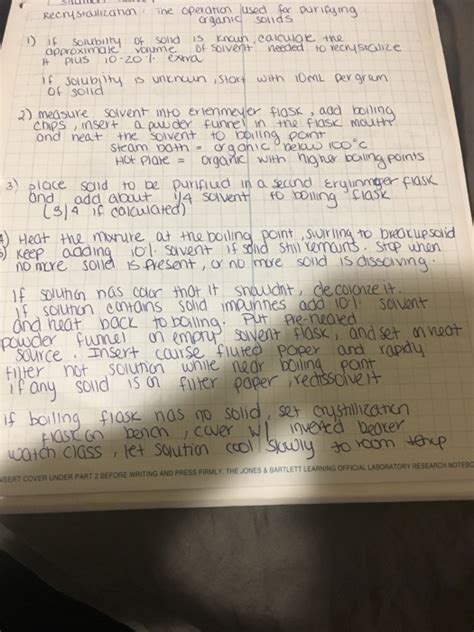 Recrystallization: The operation used for purifying
organic solids
1) if solubility of solid is known, calculate the
approximate volume of solvent needed to recrystalize
it plus 10-20% extra
if solubility is unknown, start with 10mL per gram
of solid
2) measure solvent into erlenmeyer flask, add boiling
chips, insert a powder funnel in the flask mouth
and heat the solvent to boiling point
steam bath = organic below 100°C
Hot Plate = organic with higher boiling points
3) place solid to be purified in a second Erglinmeyer flask
and add about 1/4 solvent to boiling flask
(3/4 if calculated)
4) Heat the mixture at the boiling point, swirling to breakup solid
5) keep adding 10% solvent if solid still remains. Stop when
no more solid is present, or no more solid is dissolving.
if solution has color that it shouldnt, decolorize it.
if solution contains solid impurities add 10% solvent
and heat back to boiling. Put pre-heated
powder funnel on empty solvent flask, and set on heat
source. Insert caurse fluted paper and rapidly
filter hot solution while near boiling point
if any solid is on filter paper, redissolve it
if boiling flask has no solid, set crystillization
flask on bench, cover w/ inverted beaker
watch glass, let solution cool slowly to room temp
NSERT COVER UNDER PART 2 BEFORE WRITING AND PRESS FIRMLY. THE JONES & BARTLETT LEARNING OFFICIAL LABORATORY RESEARCH NOTEBO